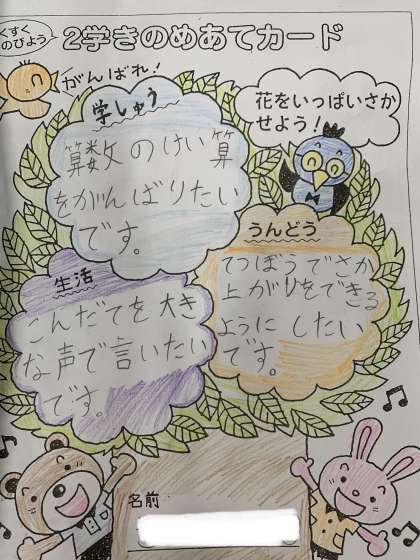 くすく
のびよう
2学きのめあてカード
がんばれ！
学しゅう
算数のけい算
をがんばりたい
です。
花をいっぱいさか
せよう！
うんどう
てつぼうでさか
上がりをできる
ようにしたい
です。
生活
こんだてを大き
な声で言いたい
です。
名前